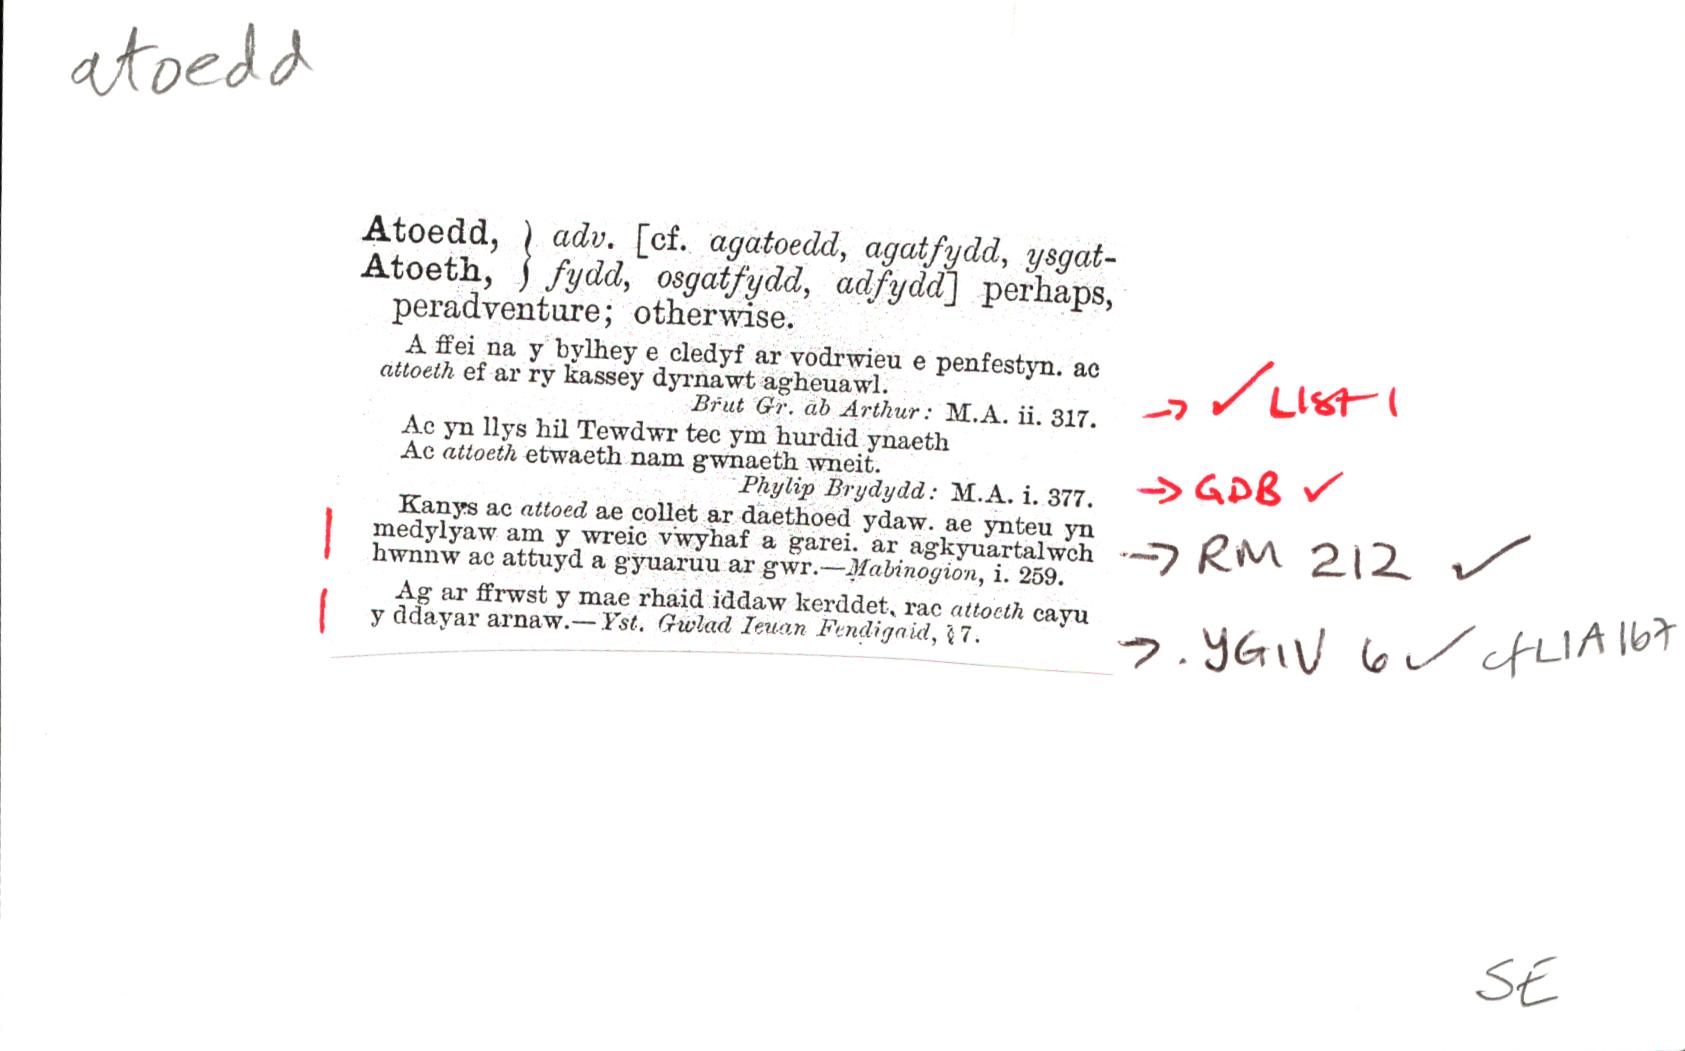 atoedd
Atoedd, } adv. [cf. agatoedd, agatfydd, ysgat-
Atoeth, } fydd, osgatfydd, adfydd] perhaps,
peradventure; otherwise.
A ffei na y bylhey e cledyf ar vodrwieu e penfestyn. ac
attoeth ef ar ry kassey dyrnawt agheuawl.
Brut Gr. ab Arthur: M.A. ii. 317. → ✓ List 1
Ac yn llys hil Tewdwr tec ym hurdid ynaeth
Ac attoeth etwaeth nam gwnaeth wneit.
Phylip Brydydd: M.A. i. 377. → GDB ✓
Kanys ac attoed ae collet ar daethoed ydaw. ae ynteu yn
medylyaw am y wreic vwyhaf a garei. ar agkyuartalwch → RM 212 ✓
hwnnw ac attuyd a gyuaruu ar gwr.—Mabinogion, i. 259.
Ag ar ffrwst y mae rhaid iddaw kerddet, rac attoeth cayu
y ddayar arnaw.—Yst. Gwlad Ieuan Fendigaid, § 7. → YGIV 6 ✓ cf LlA 167
SE